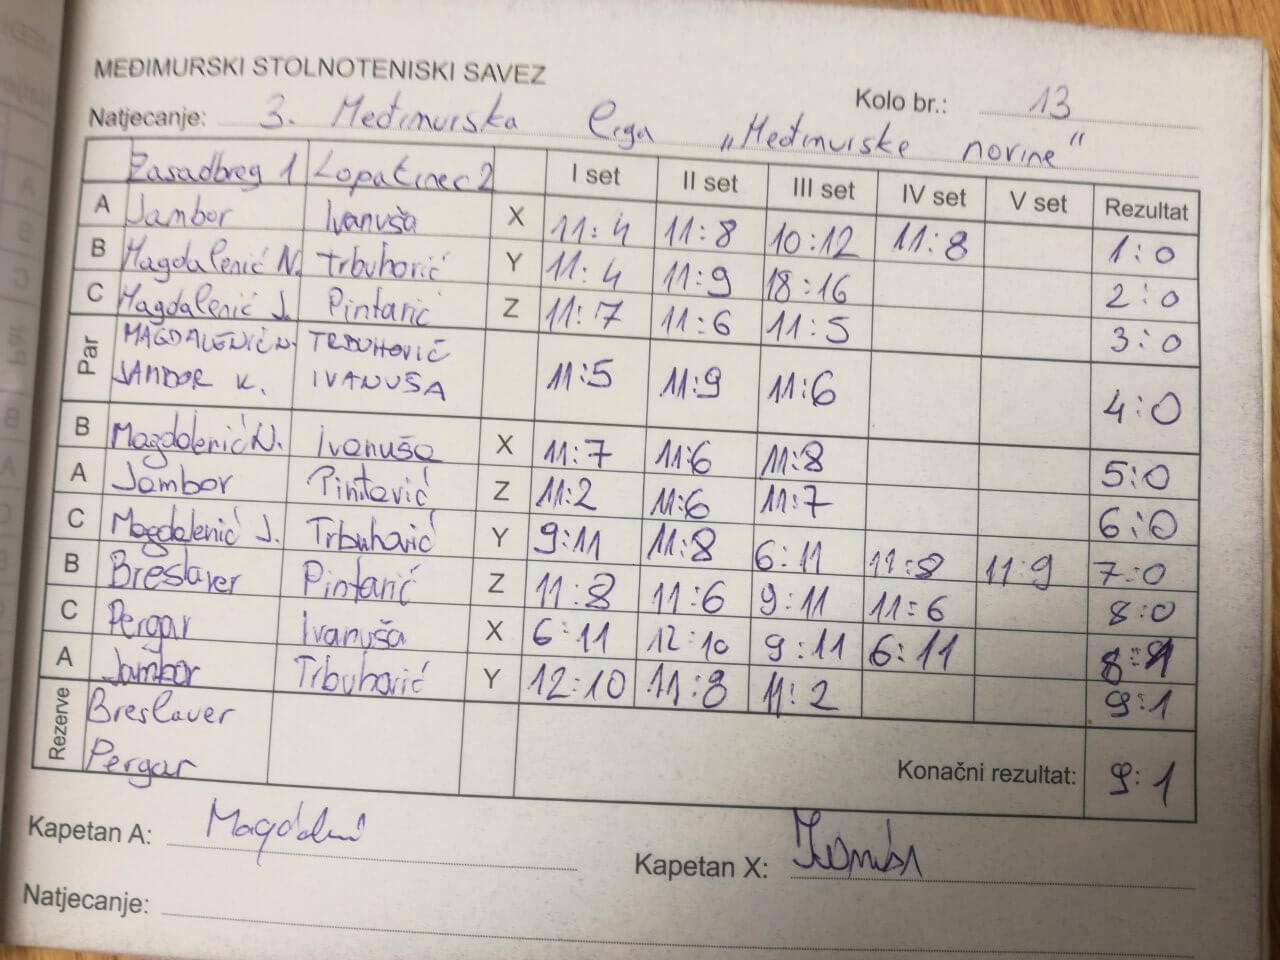 MEĐIMURSKI STOLNOTENISKI SAVEZ
Kolo br.: 13
Natjecanje: 3. Međimurska liga "Međimurske novine"
Zasadbreg 1 Lopatinec 2 I set II set III set IV set V set Rezultat
A Jambor Ivanuša X 11:4 11:8 10:12 11:8 1:0
B Magdalenić N. trbuhović Y 11:4 11:9 18:16 2:0
C Magdalenić J. Pintarić Z 11:7 11:6 11:5 3:0
Par MAGDALENIĆ N. TRBUHOVIĆ 11:5 11:9 11:6 4:0
JAMBOR K. IVANUŠA
B Magdalenić N. Ivanuša X 11:7 11:6 11:8 5:0
A Jambor Pintarić Z 11:2 11:6 11:7 6:0
C Magdalenić J. Trbuhović Y 9:11 11:8 6:11 11:8 11:9 7:0
B Breslaver Pintarić Z 11:8 11:6 9:11 11:6 8:0
C Pergar Ivanuša X 6:11 12:10 9:11 6:11 8:1
A Jambor Trbuhović Y 12:10 11:8 11:2 9:1
Rezerve Breslaver
Pergar
Konačni rezultat: 9:1
Kapetan A:
Kapetan X:
Natjecanje: